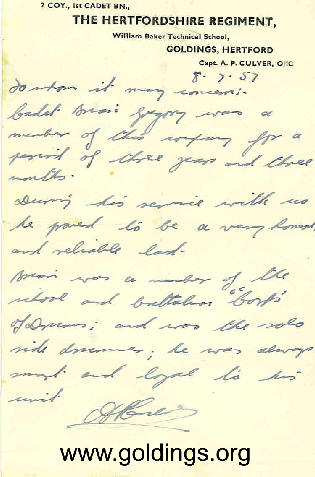 2 COY., 1st CADET BN.,
THE HERTFORDSHIRE REGIMENT,
William Baker Technical School,
GOLDINGS, HERTFORD
Capt. A. P. CULVER, O/C.
8-7-57
To whom it may concern:-
Cadet Brian Gregory was a
member of this company for a
period of three years and three
months.
During his service with us
he proved to be a very honest
and reliable lad.
Brian was a member of the
school and battalion "Corps
of Drums; and was the solo
side drummer; he was always
smart and loyal to his
unit
www.goldings.org